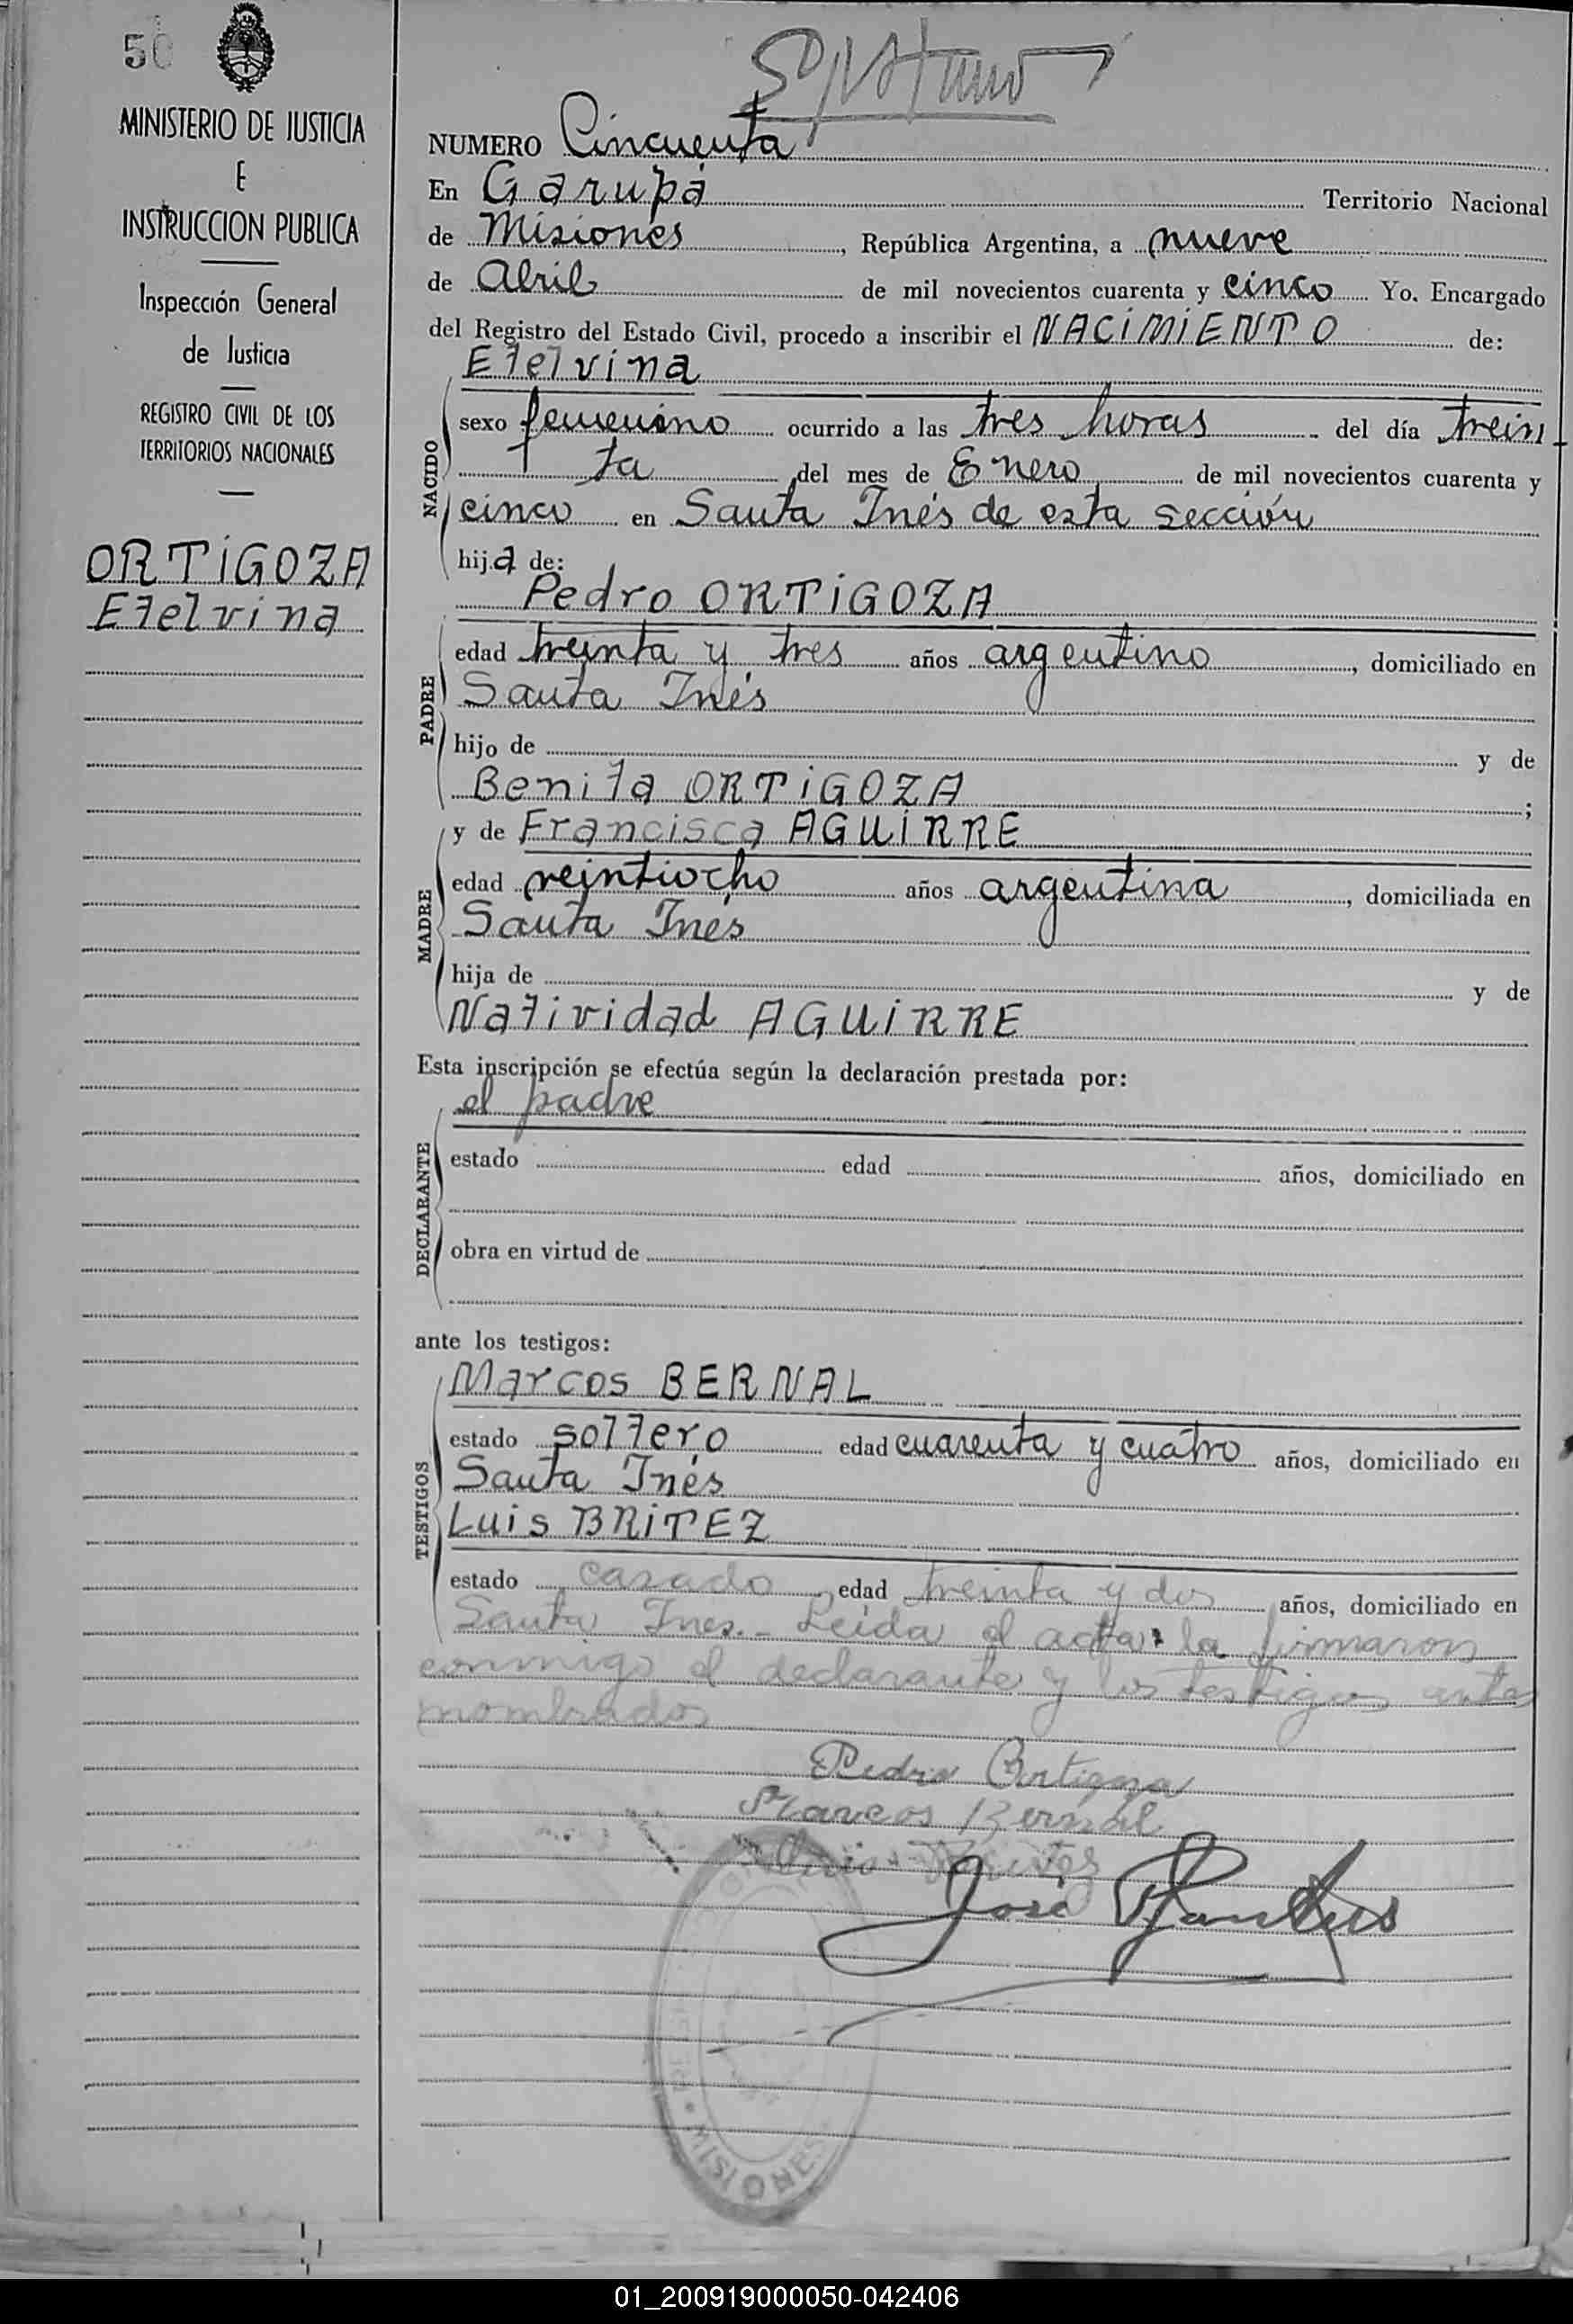 50
MINISTERIO DE JUSTICIA
E
INSTRUCCION PUBLICA
Inspección General
de Justicia
REGISTRO CIVIL DE LOS
TERRITORIOS NACIONALES
ORTiGOZA
Etelvina
NUMERO Cincuenta
En Garupá Territorio Nacional
de Misiones, República Argentina, a nueve
de Abril de mil novecientos cuarenta y cinco Yo. Encargado
del Registro del Estado Civil, procedo a inscribir el NACiMiENTO de:
NACIDO
Etelvina
sexo femenino ocurrido a las tres horas del día trein
ta del mes de Enero de mil novecientos cuarenta y
cinco en Santa Inés de esta sección
hija de:
PADRE
Pedro ORTiGOZA
edad treinta y tres años argentino, domiciliado en
Santa Inés
hijo de y de
Benita ORTiGOZA;
MADRE
y de Francisca AGUiRRE
edad veintiocho años argentina, domiciliada en
Santa Inés
hija de y de
Natividad AGUiRRE
Esta inscripción se efectúa según la declaración prestada por:
DECLARANTE
el padre
estado edad años, domiciliado en
obra en virtud de
ante los testigos:
TESTIGOS
Marcos BERNAL
estado soltero edad cuarenta y cuatro años, domiciliado en
Santa Inés
Luis BRiTEZ
estado casado edad treinta y dos años, domiciliado en
Santa Ines.- Leida el acta la firmaron
conmigo el declarante y los testigos ante
nombrados
Pedro Ortigoza
Marcos Bernal
Luis
José
MISIONES
01_200919000050-042406